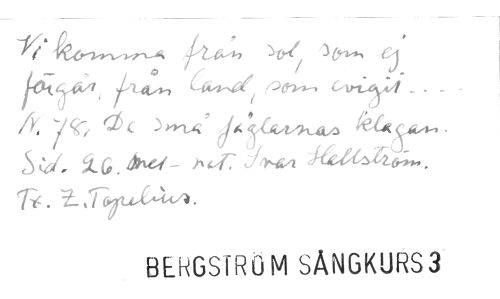 Vi komma från sol, som ej
förgår, från land, som evigt....
N. 78. De små fåglarnas klagan.
Sid. 26. Mel- nat. Ivar Hallström.
Tx. Z. Topelius.
BERGSTRÖM SÅNGKURS 3